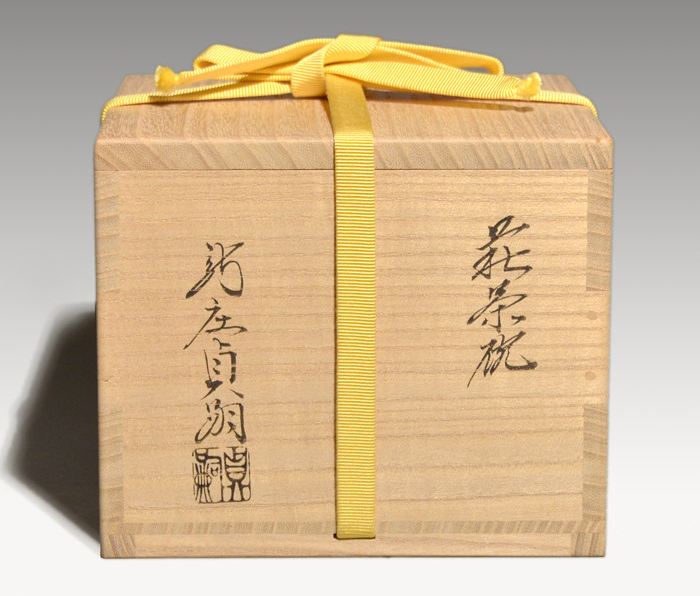 萩茶碗
新庄貞嗣
貞嗣